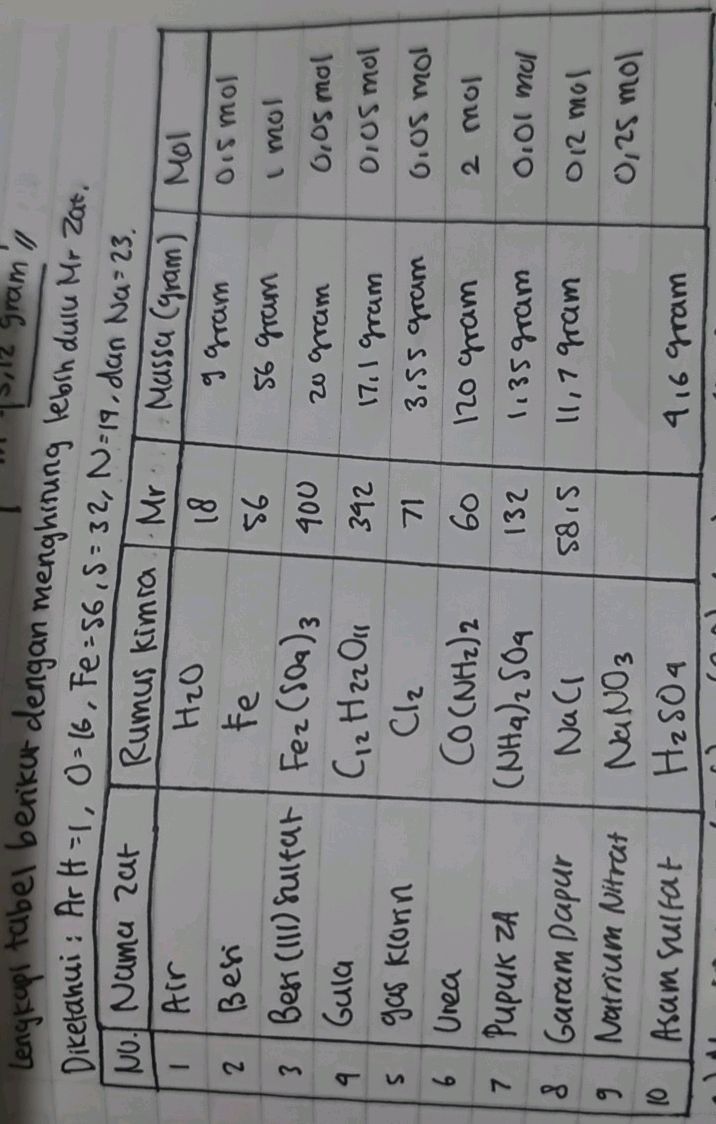 3,12 gram //
Lengkapi tabel berikut dengan menghitung lebih dulu Mr Zat.
Diketahui : Ar H =1, O=16, Fe=56, S=32, N=19, dan Na=23.
No. Nama zat Rumus kimia Mr Massa (gram) Mol
1 Air H2O 18 9 gram 0,5 mol
2 Besi Fe 56 56 gram 1 mol
3 Besi (III) Sulfat Fe2(SO4)3 400 20 gram 0,05 mol
4 Gula C12H22O11 342 17,1 gram 0,05 mol
5 gas klorin Cl2 71 3,55 gram 0,05 mol
6 Urea CO(NH2)2 60 120 gram 2 mol
7 Pupuk ZA (NH4)2SO4 132 1,35 gram 0,01 mol
8 Garam Dapur NaCl 58,5 11,7 gram 0,2 mol
9 Natrium Nitrat NaNO3 0,25 mol
10 Asam sulfat H2SO4 4,6 gram